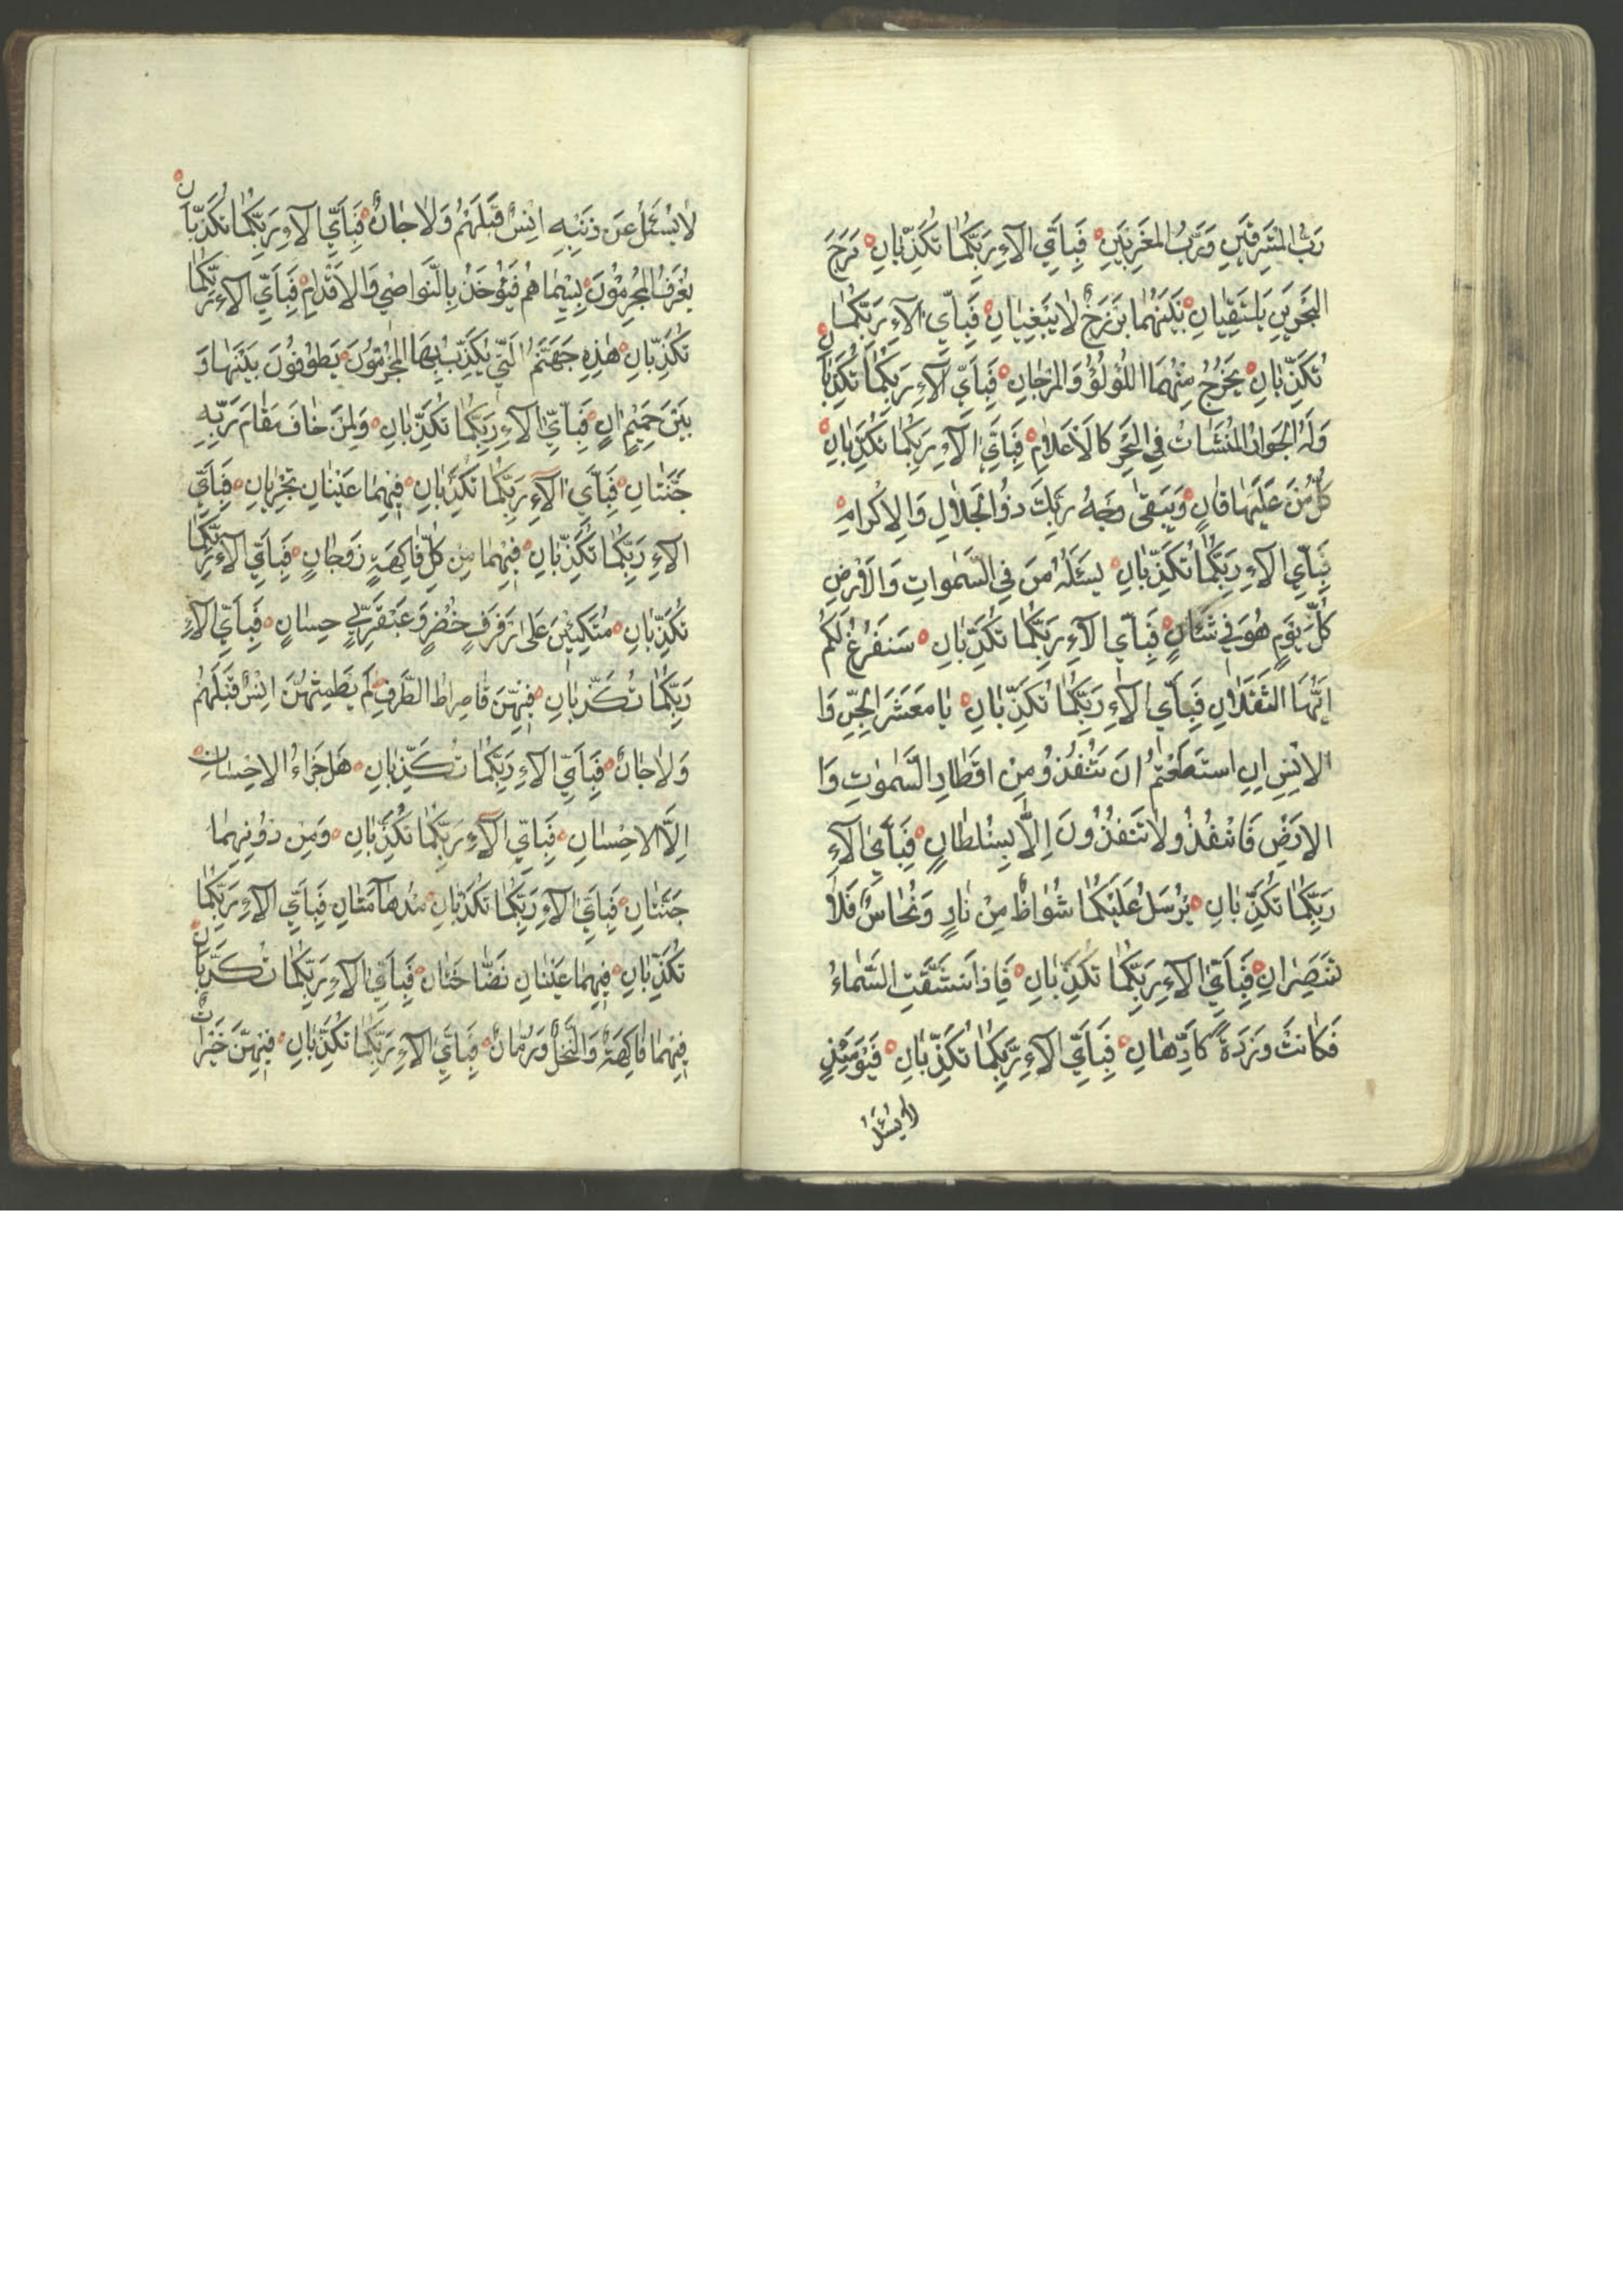 رَبُّ المَشْرِقَيْنِ وَرَبُّ المَغْرِبَيْنِ فَبِاَيِّ الآءِ رَبِّكُمٰا تُكَذِّبٰانِ مَرَجَ
البَحْرَيْنِ يَلْتَقِيٰانِ بَيْنَهُمٰا بَرْزَخٌ لٰا يَبْغِيٰانِ فَبِاَيِّ الآءِ رَبِّكُمٰا
تُكَذِّبٰانِ يَخْرُجُ مِنْهُمَا اللُؤْلُؤُ وَالمَرْجٰانِ فَبِاَيِّ الآءِ رَبِّكُمٰا تُكَذِّبٰانِ
وَلَهُ الجَوٰارُ المُنْشَئٰاتُ فِي البَحْرِ كَالاَعْلٰامِ فَبِاَيِّ الآءِ رَبِّكُمٰا تُكَذِّبٰانِ
كُلُّ مَنْ عَلَيْهٰا فٰانٍ وَيَبْقىٰ وَجْهُ رَبِّكَ ذُوالجَلٰالِ وَالاِكْرٰامِ
فَبِاَيِّ الآءِ رَبِّكُمٰا تُكَذِّبٰانِ يَسْئَلُهُ مَنْ فِي السَّمٰوٰاتِ وَالاَرْضِ
كُلَّ يَوْمٍ هُوَ فِي شَئْانٍ فَبِاَيِّ الآءِ رَبِّكُمٰا تُكَذِّبٰانِ سَنَفْرُغُ لَكُمْ
اَيُّهَا الثَّقَلٰانِ فَبِاَيِّ الآءِ رَبِّكُمٰا تُكَذِّبٰانِ يٰا مَعْشَرَ الجِنِّ وَا
لاِنْسِ اِنِ اسْتَطَعْتُمْ اَنْ تَنْفُذُوْ مِنْ اَقْطٰارِ السَّمٰوٰتِ وَا
لاَرْضِ فَانْفُذُو لٰا تَنْفُذُونَ اِلّٰا بِسُلْطٰانٍ فَبِاَيِّ الآءِ
رَبِّكُمٰا تُكَذِّبٰانِ يُرْسَلُ عَلَيْكُمٰا شُوٰاظٌ مِنْ نٰارٍ وَنُحٰاسٌ فَلٰا
تَنْتَصِرٰانِ فَبِاَيِّ الآءِ رَبِّكُمٰا تُكَذِّبٰانِ فَاِذَا انْشَقَّتِ السَّمٰاءُ
فَكٰانَتْ وَرْدَةً كَالدِّهٰانِ فَبِاَيِّ الآءِ رَبِّكُمٰا تُكَذِّبٰانِ فَيَوْمَئِذٍ
لٰا يُسْئَلُ
لٰا يُسْئَلُ عَنْ ذَنْبِهِ اِنْسٌ قَبْلَهُمْ وَلٰا جٰانٌ فَبِاَيِّ الآءِ رَبِّكُمٰا تُكَذِّبٰانِ
يُعْرَفُ المُجْرِمُوْنَ بِسِيْمٰاهُمْ فَيُؤْخَذُ بِالنَّوٰاصِيْ وَالاَقْدٰامِ فَبِاَيِّ الآءِ رَبِّكُمٰا
تُكَذِّبٰانِ هٰذِهِ جَهَنَّمُ الَّتِي يُكَذِّبُ بِهَا المُجْرِمُوْنَ يَطُوْفُوْنَ بَيْنَهٰا وَ
بَيْنَ حَمِيْمٍ اٰنٍ فَبِاَيِّ الآءِ رَبِّكُمٰا تُكَذِّبٰانِ وَلِمَنْ خٰافَ مَقٰامَ رَبِّهِ
جَنَّتٰانِ فَبِاَيِّ الآءِ رَبِّكُمٰا تُكَذِّبٰانِ فِيْهِمٰا عَيْنٰانِ تَجْرِيٰانِ فَبِاَيِّ
الآءِ رَبِّكُمٰا تُكَذِّبٰانِ فِيْهِمٰا مِنْ كُلِّ فٰاكِهَةٍ زَوْجٰانٍ فَبِاَيِّ الآءِ رَبِّكُمٰا
تُكَذِّبٰانِ مُتَّكِئِيْنَ عَلىٰ رَفْرَفٍ خُضْرٍ وَعَبْقَرِيٍّ حِسٰانٍ فَبِاَيِّ الآءِ
رَبِّكُمٰا تُكَذِّبٰانِ فِيْهِنَّ قٰاصِرٰاطُ الطَّرْفِ لَمْ يَطْمِثْهُنَّ اِنْسٌ قَبْلَهُمْ
وَلٰا جٰانٌ فَبِاَيِّ الآءِ رَبِّكُمٰا تُكَذِّبٰانِ هَلْ جَزٰاءُ الاِحْسٰانِ
اِلَّا الاِحْسٰانِ فَبِاَيِّ الآءِ رَبِّكُمٰا تُكَذِّبٰانِ وَمِنْ دُوْنِهِمٰا
جَنَّتٰانِ فَبِاَيِّ الآءِ رَبِّكُمٰا تُكَذِّبٰانِ مُدْهٰآمَّتٰانِ فَبِاَيِّ الآءِ رَبِّكُمٰا
تُكَذِّبٰانِ فِيْهِمٰا عَيْنٰانِ نَضّٰاخَتٰان فَبِاَيِّ الآءِ رَبِّكُمٰا تُكَذِّبٰانِ
فِيْهِمٰا فٰاكِهَةٌ وَالنَّخْلُ وَرُمّٰانٌ فَبِاَيِّ الآءِ رَبِّكُمٰا تُكَذِّبٰانِ فِيْهِنَّ خَيْرٰاتٌ